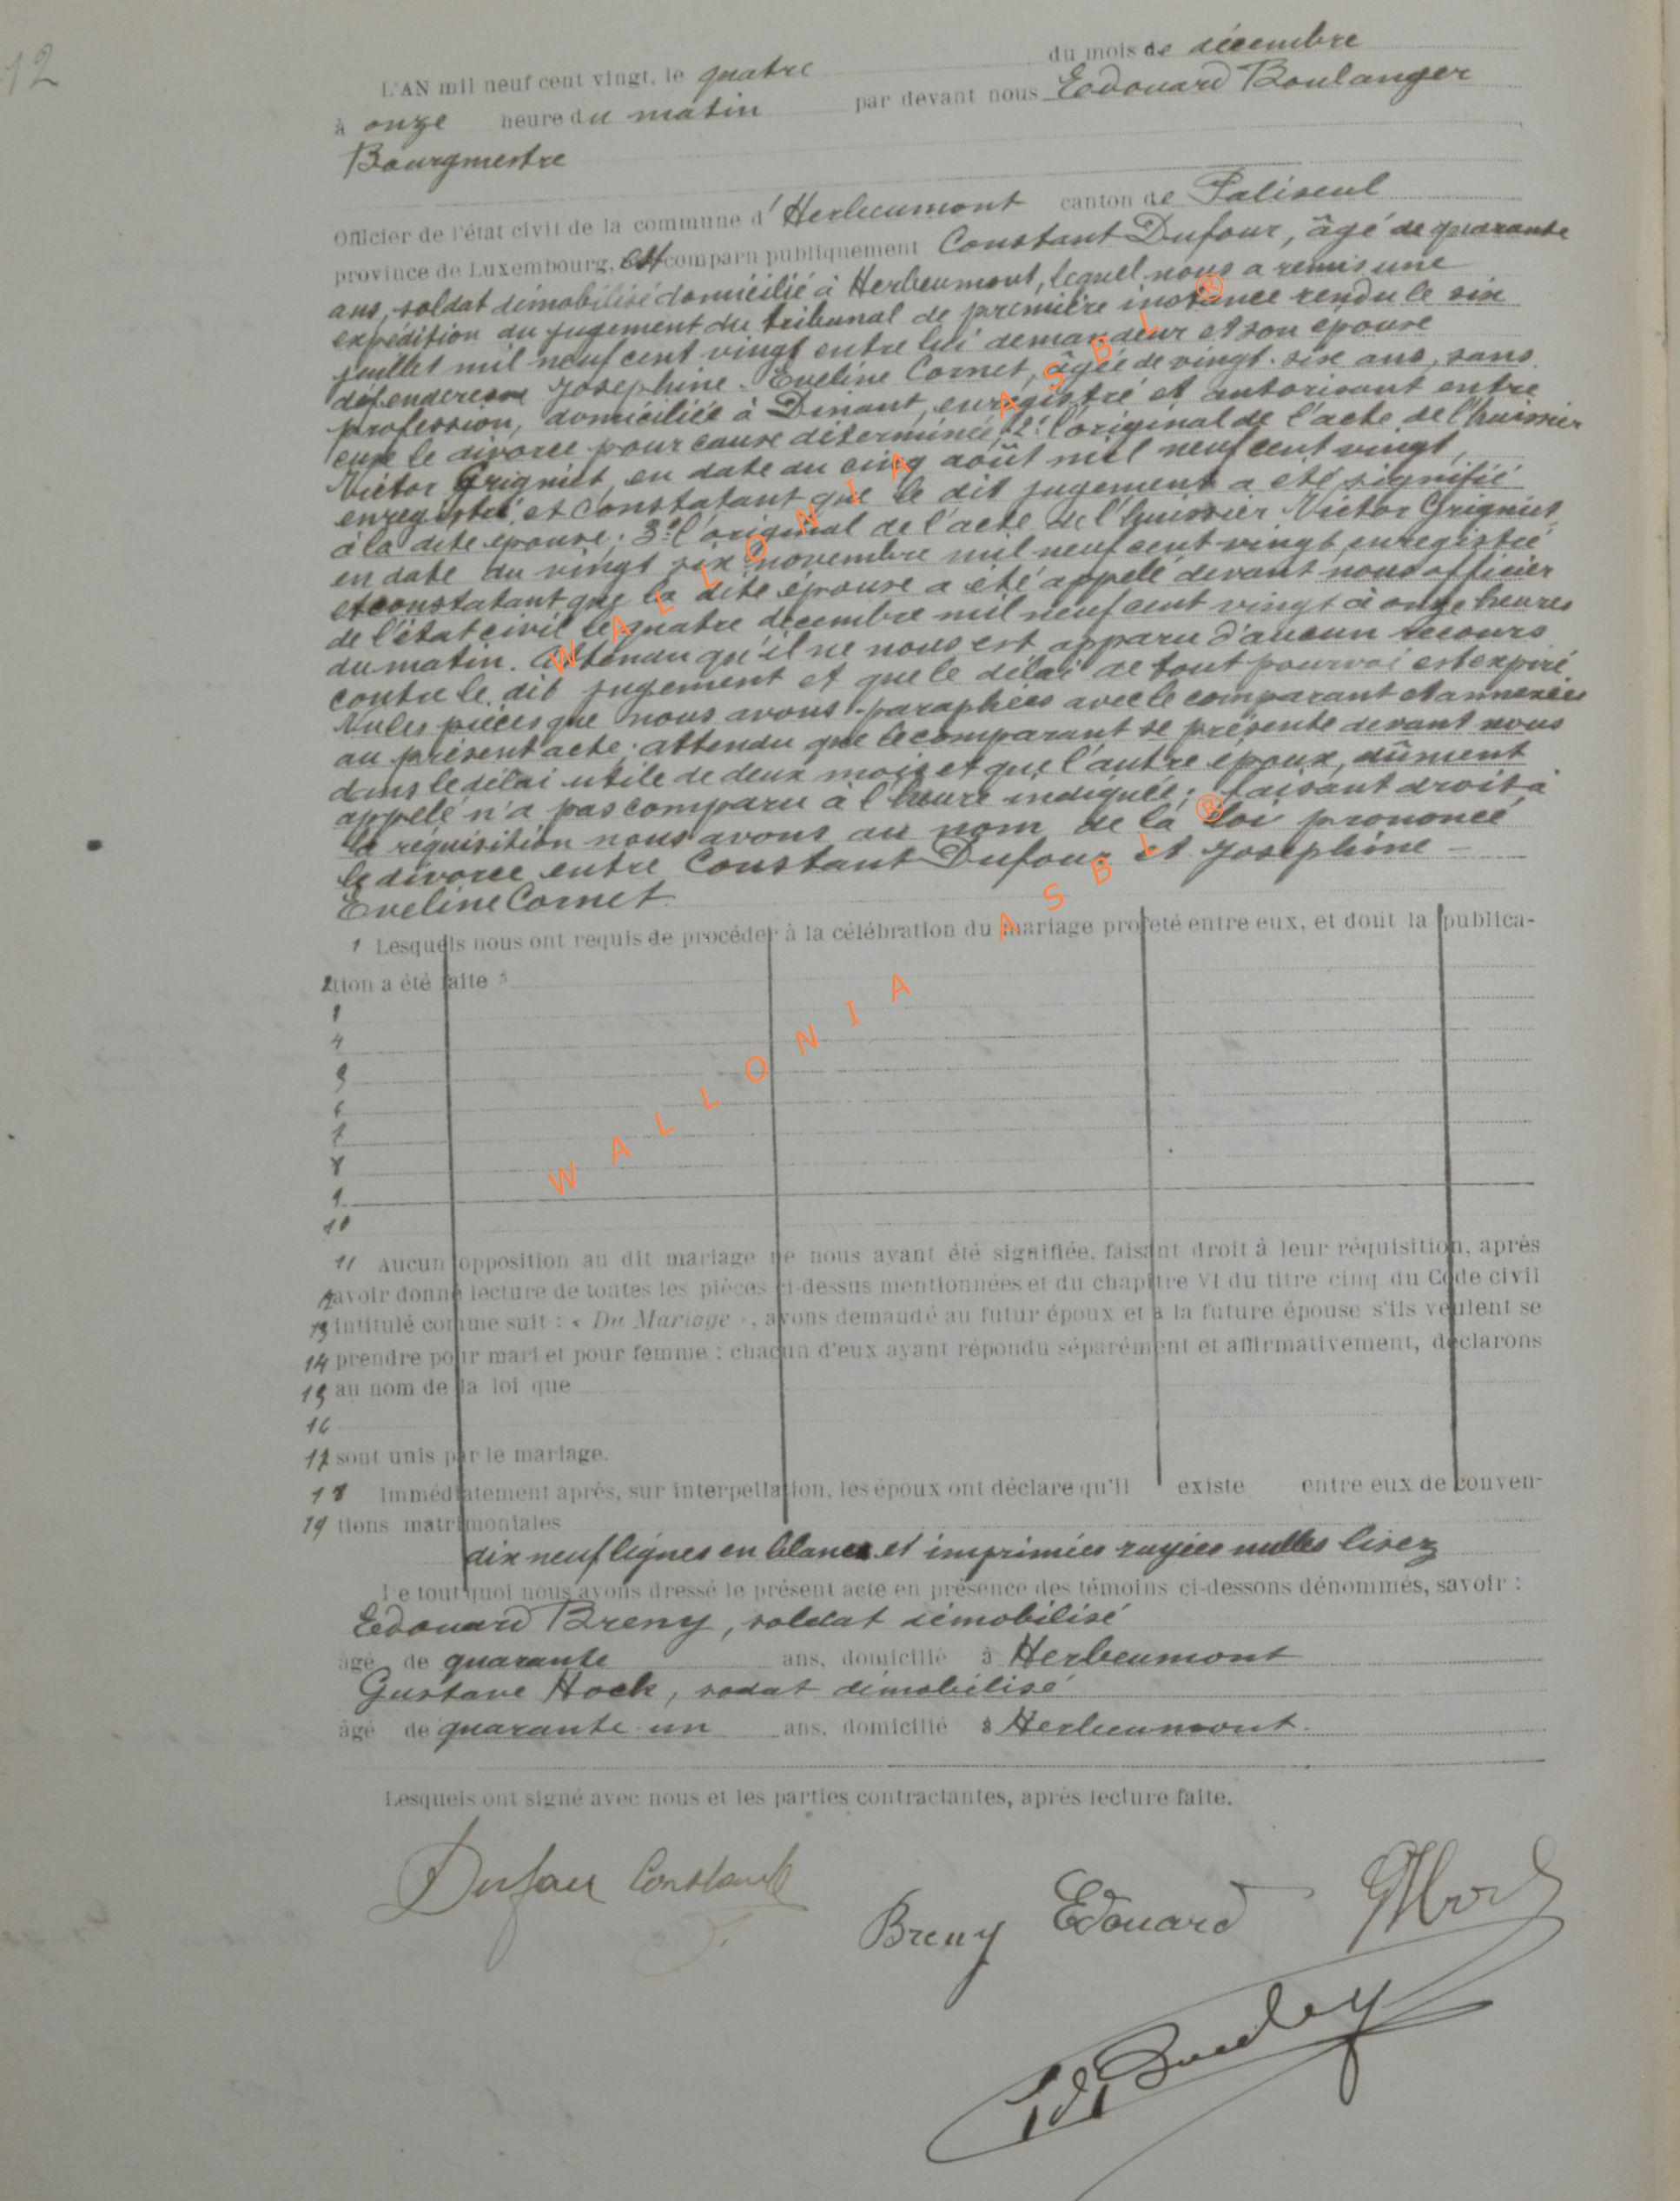 12
L'AN mil neuf cent vingt, le quatre du mois de décembre
à onze heure du matin par devant nous Edouard Boulanger
Bourgmestre
Officier de l'état civil de la commune d'Herbeumont canton de Paliseul
province de Luxembourg, est comparu publiquement Constant Dufour, âgé de quarante
ans, soldat démobilisé domicilié à Herbeumont, lequel nous a remis une
expédition du jugement du tribunal de première instance rendu le six
juillet mil neuf cent vingt entre lui demandeur et son épouse
défenderesse Joséphine-Eveline Cornet, âgée de vingt-six ans, sans
profession, domiciliée à Dinant, enregistré et autorisant entre
eux le divorce pour cause déterminée, 2° l'original de l'acte de l'huissier
Victor Grigniet, en date du cinq août mil neuf cent vingt,
enregistré et constatant que le dit jugement a été signifié
à la dite épouse; 3° l'original de l'acte de l'huissier Victor Grigniet
en date du vingt six novembre mil neuf cent vingt enregistré
et constatant que la dite épouse a été appelé devant nous officier
de l'état civil le quatre décembre mil neuf cent vingt à onze heures
du matin. Attendu qu'il ne nous est apparu d'aucun recours
contre le dit jugement et que le délai de tout pourvoi est expiré
Vu les pièces que nous avons paraphées avec le comparant et annexées
au présent acte; attendu que le comparant se présente devant nous
dans le délai utile de deux mois et que l'autre époux, dûment
appelé n'a pas comparu à l'heure indiquée; faisant droit à
la réquisition nous avons au nom de la loi prononcé
le divorce entre Constant Dufour et Joséphine -
Eveline Cornet
1 Lesquels nous ont requis de procéder à la célébration du mariage projeté entre eux, et dont la publica-
2 tion a été faite à
3
4
5
6
7
8
9
10
11 Aucun opposition au dit mariage ne nous ayant été signifiée, faisant droit à leur réquisition, après
12 avoir donné lecture de toutes les pièces ci-dessus mentionnées et du chapitre VI du titre cinq du Code civil
13 intitulé comme suit : « Du Mariage », avons demandé au futur époux et à la future épouse s'ils veulent se
14 prendre pour mari et pour femme : chacun d'eux ayant répondu séparément et affirmativement, déclarons
15 au nom de la loi que
16
17 sont unis par le mariage.
18 Immédiatement après, sur interpellation, les époux ont déclaré qu'il existe entre eux de conven-
19 tions matrimoniales
dix neuf lignes en blanc et imprimées rayées nulles lisez
De tout quoi nous avons dressé le présent acte en présence des témoins ci-dessons dénommés, savoir :
Edouard Breny, soldat démobilisé
âgé de quarante ans, domicilié à Herbeumont
Gustave Hock, sodat démobilisé
âgé de quarante-un ans, domicilié à Herbeumont.
Lesquels ont signé avec nous et les parties contractantes, après lecture faite.
Dufour Constant
Breny Edouard GHock
WALLONIA ASBL®
WALLONIA ASBL®